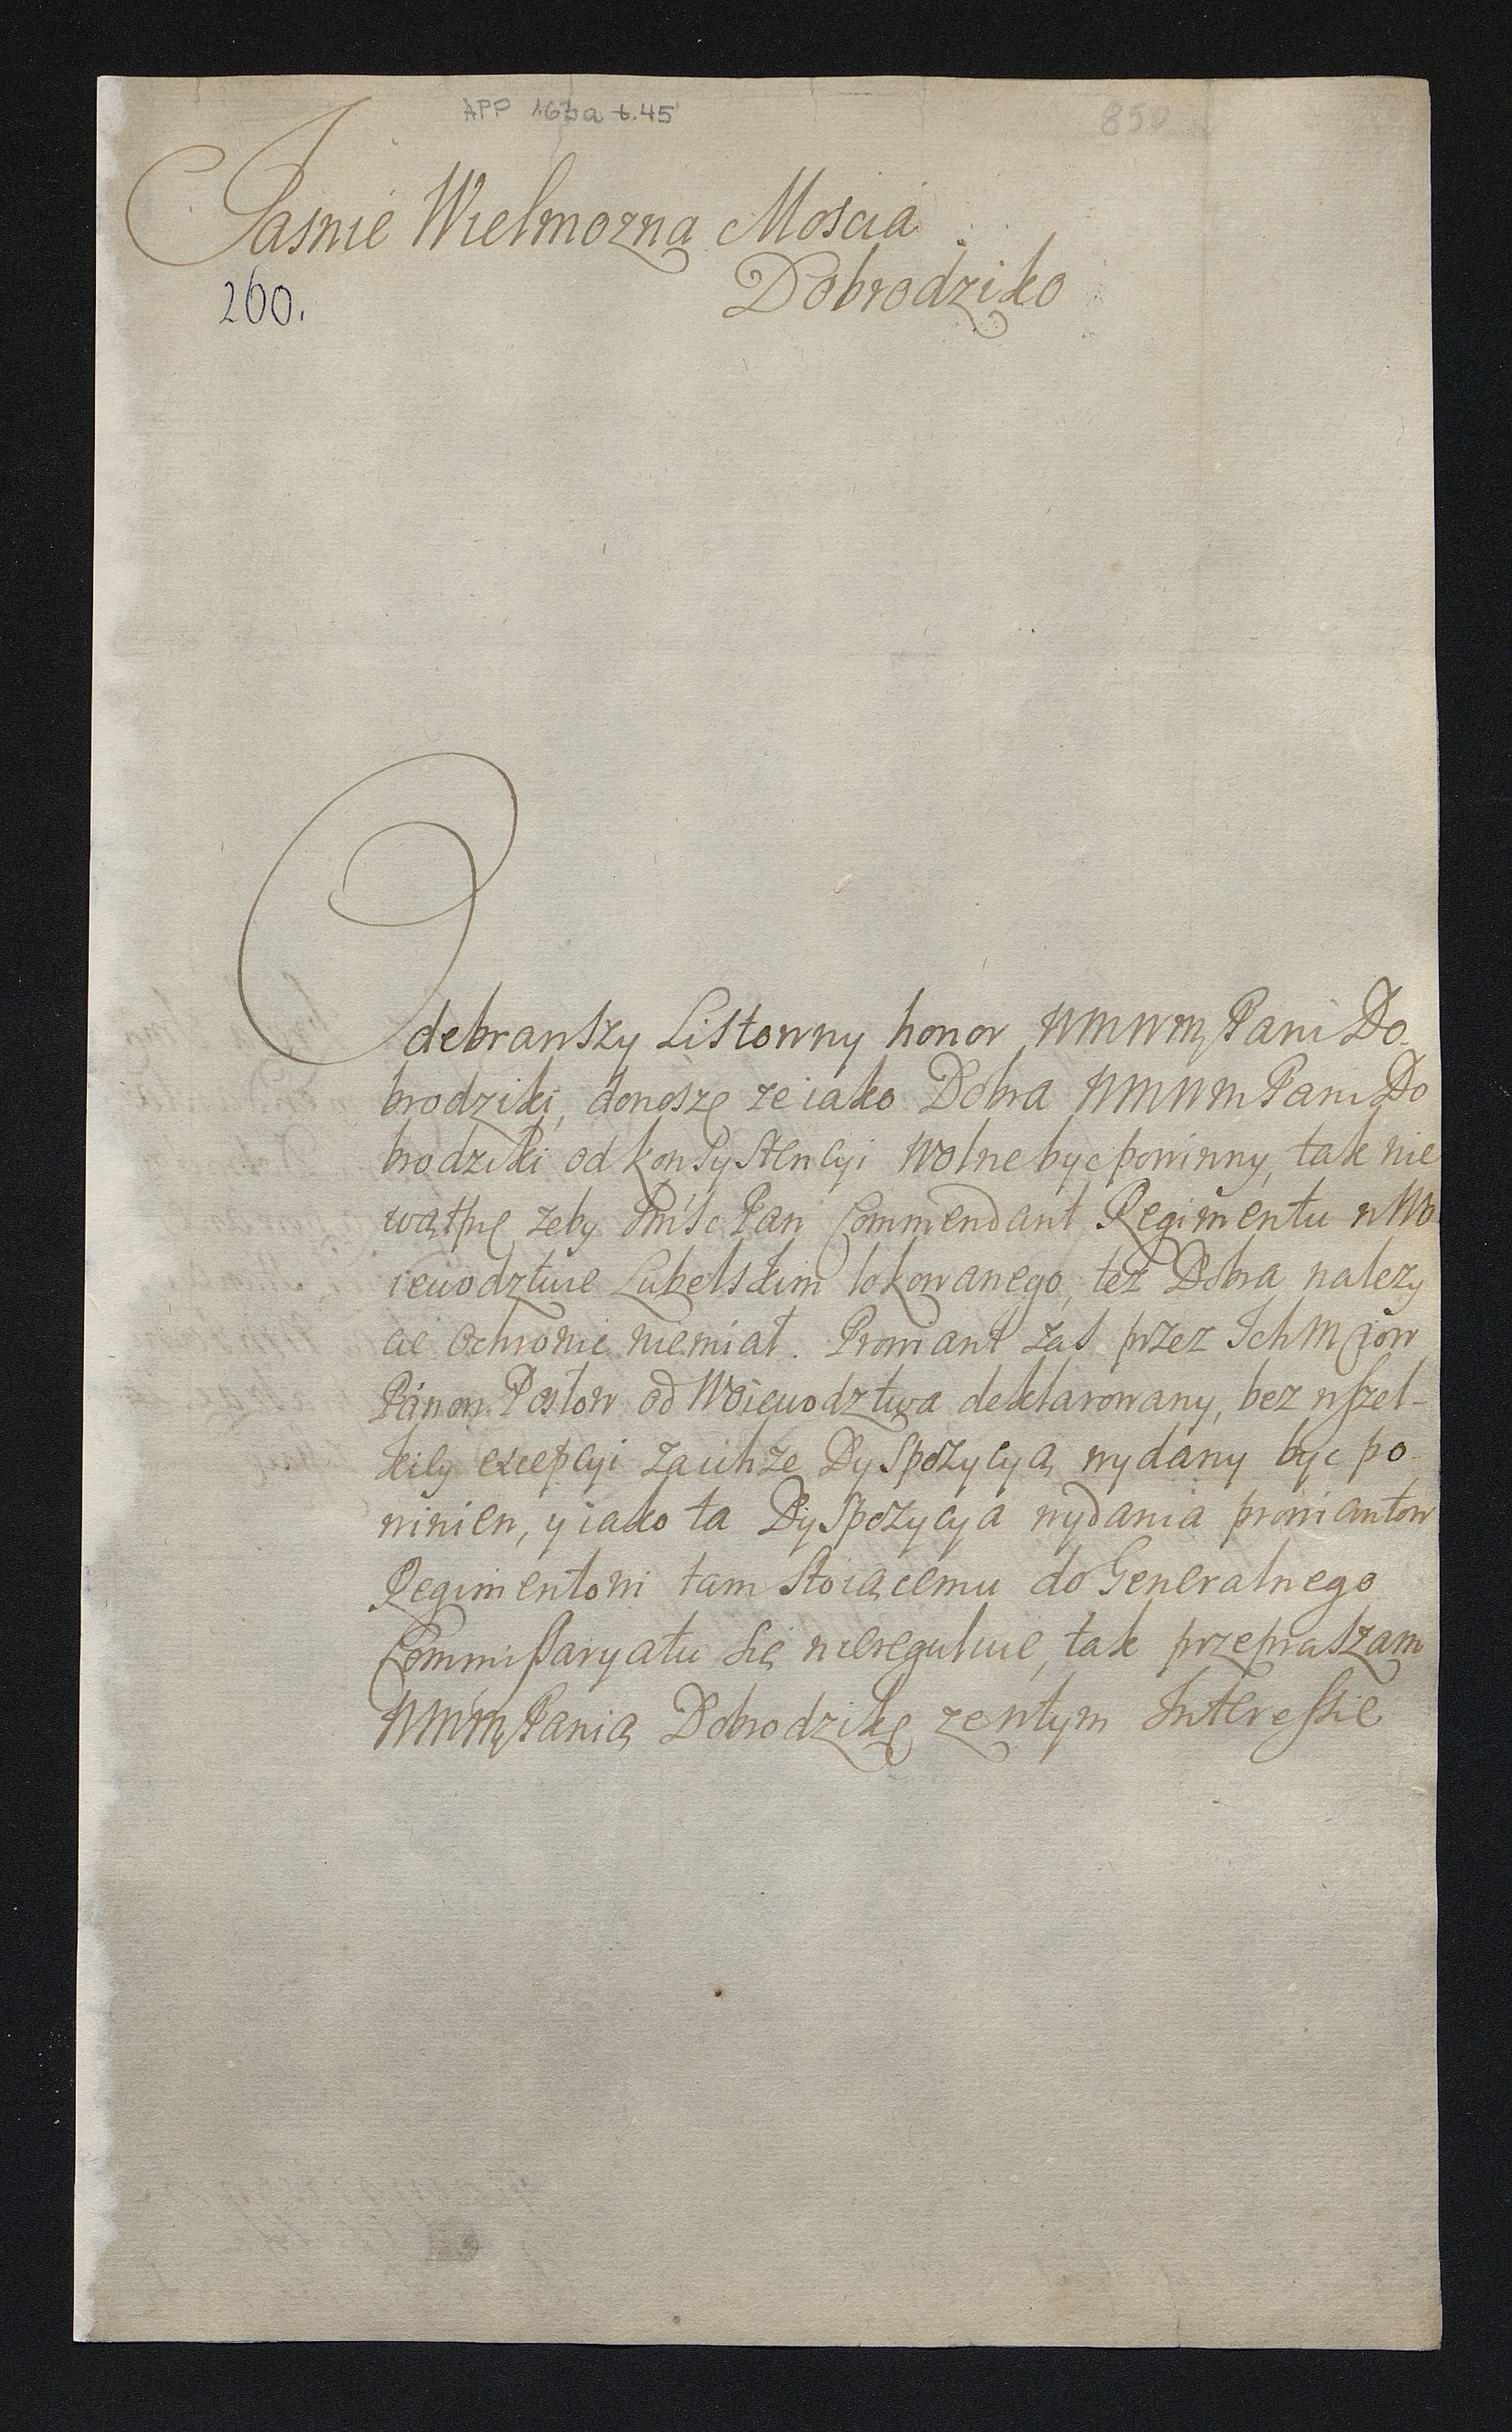 APP 163a t.45
850
Jasnie Wielmozna Moscia
Dobrodziko
260.
Odebrawszy Listowny honor WMWM Pani Do-
brodziki, donoszę ze iako Dobra WMWM Pani Do
brodziki od konsystencyi wolne byc powinny, tak nie
wątpię zeby Jmśc Pan Commendant Regimentu w Wo
iewodztwie Lubelskim lokowanego, tez Dobra nalezy
cie ochronic niemiał. Prowiant zas przez Ich Mciow
Pánow Posłow od Woiewodztwa deklarowany, bez wszel-
kiey excepcyi za ichze Dyspozycyą wydany byc po-
winien, y iako ta Dyspozycya wydania prowiantow
Regimentowi tam stoiącemu do Generalnego
Commissaryatu się niereguluie, tak przepraszam
WMM Panią Dobrodzikę ze w tym Interessie